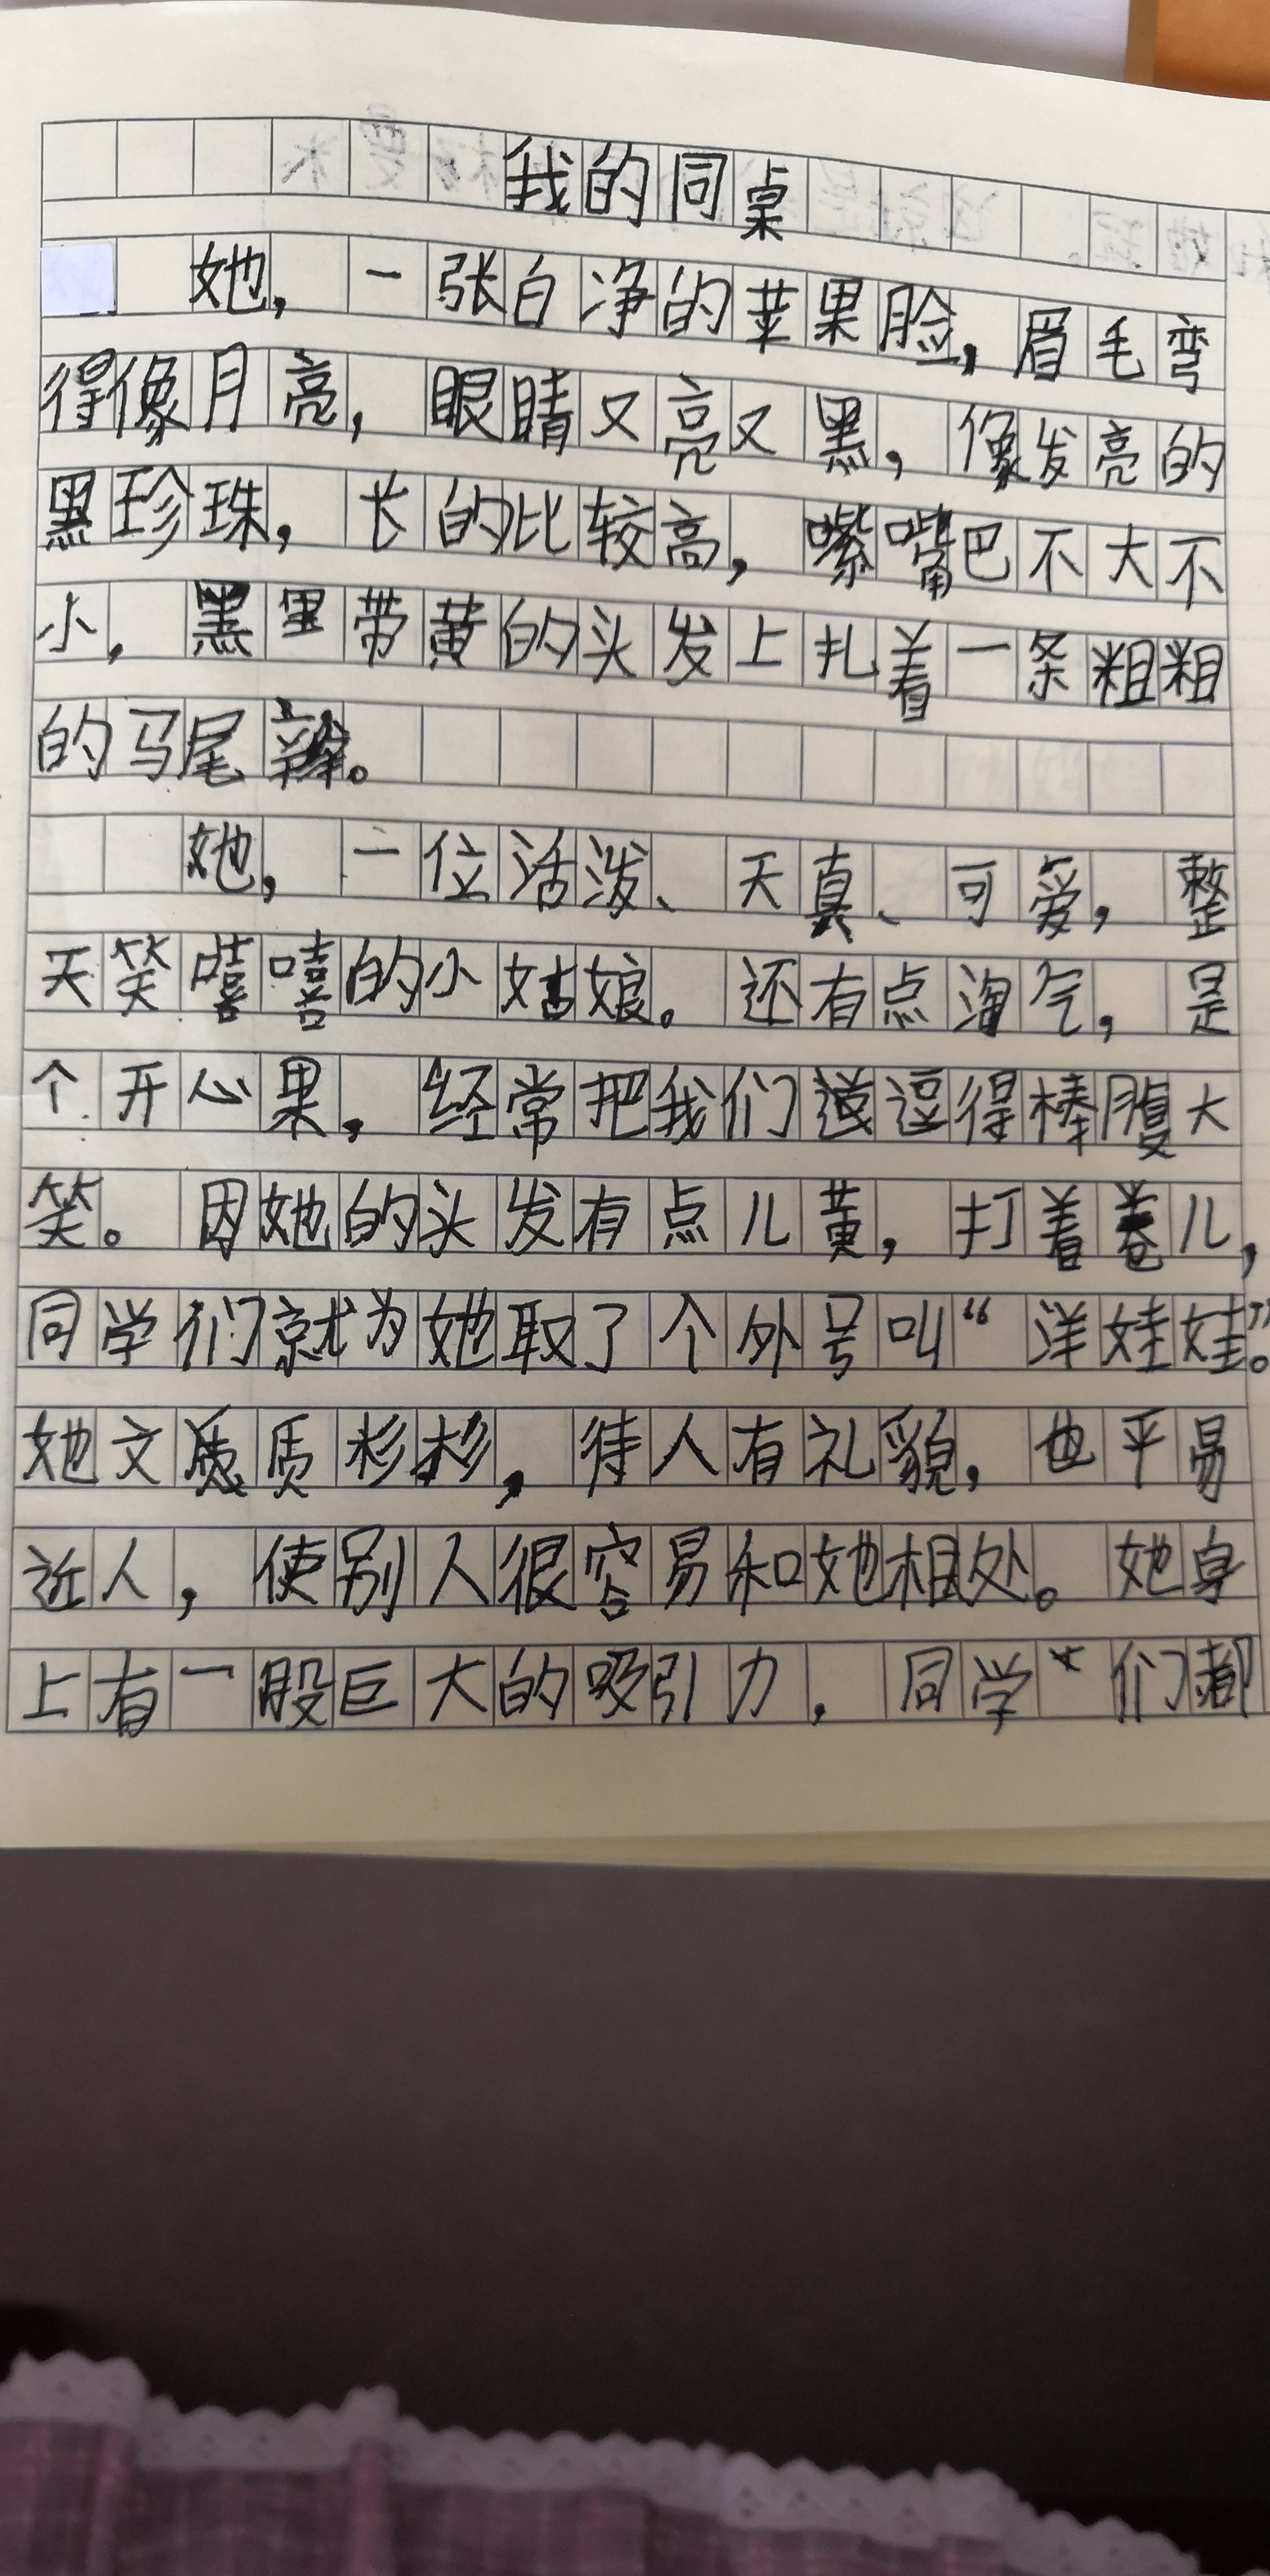 我的同桌
她，一张白净的苹果脸，眉毛弯
得像月亮，眼睛又亮又黑，像发亮的
黑珍珠，长的比较高，嘴巴不大不
小，黑里带黄的头发上扎着一条粗粗
的马尾辫。
她，一位活泼、天真、可爱，整
天笑嘻嘻的小姑娘。还有点淘气，是
个开心果，经常把我们逗得棒腹大
笑。因她的头发有点儿黄，打着卷儿，
同学们就为她取了个外号叫“洋娃娃”。
她文质杉杉，待人有礼貌，也平易
近人，使别人很容易和她相处。她身
上有一股巨大的吸引力，同学们都